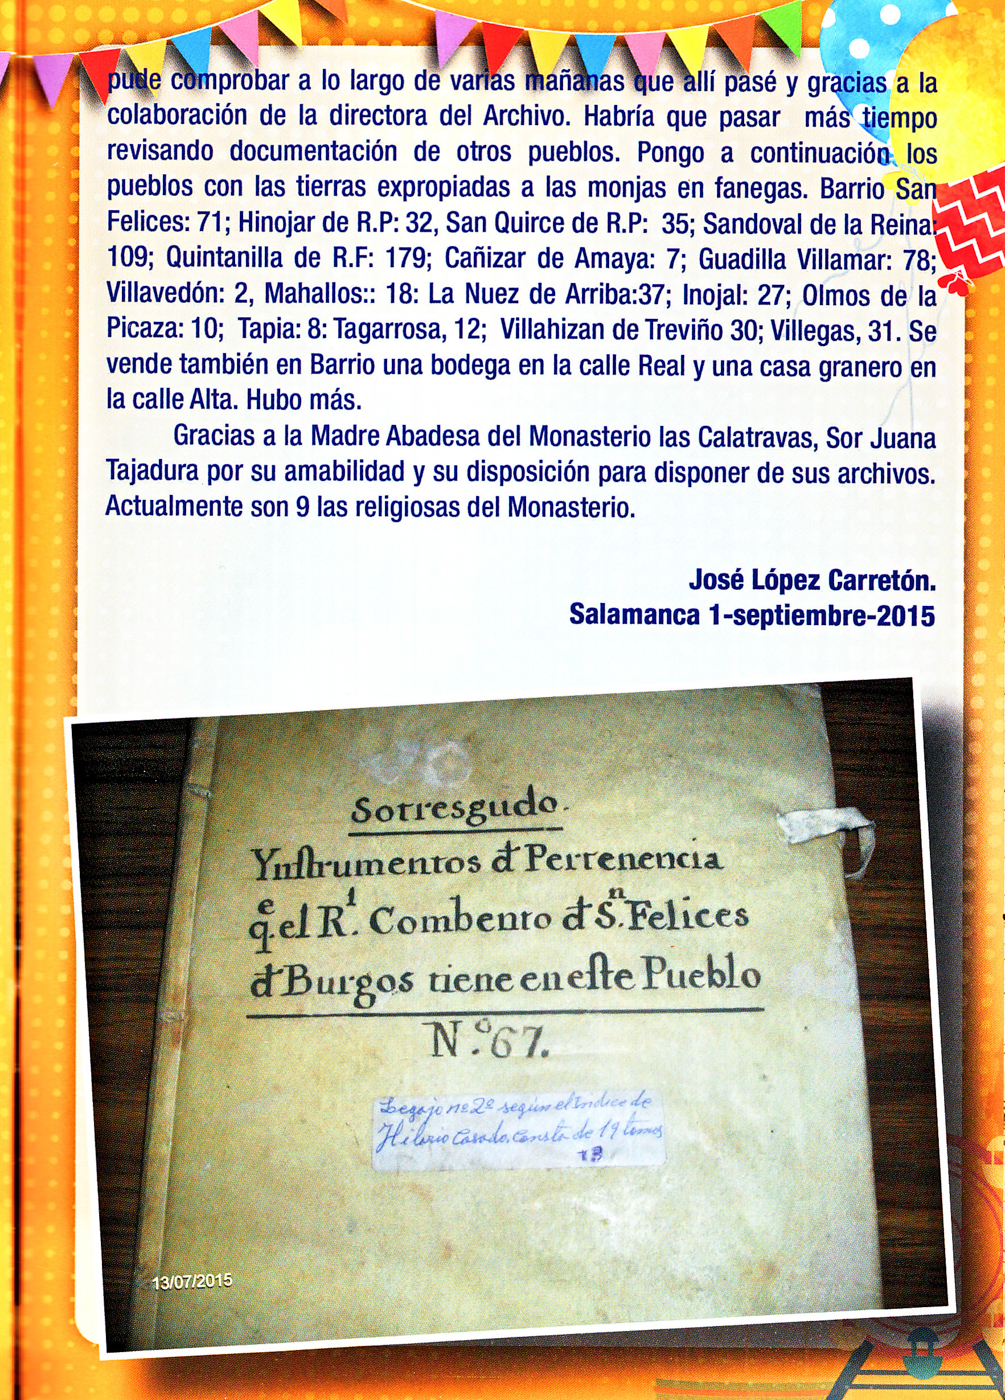 pude comprobar a lo largo de varias mañanas que allí pasé y gracias a la
colaboración de la directora del Archivo. Habría que pasar más tiempo
revisando documentación de otros pueblos. Pongo a continuación los
pueblos con las tierras expropiadas a las monjas en fanegas. Barrio San
Felices: 71; Hinojar de R.P: 32, San Quirce de R.P: 35; Sandoval de la Reina:
109; Quintanilla de R.F: 179; Cañizar de Amaya: 7; Guadilla Villamar: 78;
Villavedón: 2, Mahallos:: 18: La Nuez de Arriba:37; Inojal: 27; Olmos de la
Picaza: 10; Tapia: 8: Tagarrosa, 12; Villahizan de Treviño 30; Villegas, 31. Se
vende también en Barrio una bodega en la calle Real y una casa granero en
la calle Alta. Hubo más.
Gracias a la Madre Abadesa del Monasterio las Calatravas, Sor Juana
Tajadura por su amabilidad y su disposición para disponer de sus archivos.
Actualmente son 9 las religiosas del Monasterio.
José López Carretón.
Salamanca 1-septiembre-2015
Sotresgudo.
Ynstrumentos d Pertenencia
qe el Rl. Combento d Sn. Felices
d Burgos tiene en este Pueblo
N.º 67.
Legajo nº 2º según el Indice de
Hilario Casado, consta de 19 tomos
13/07/2015